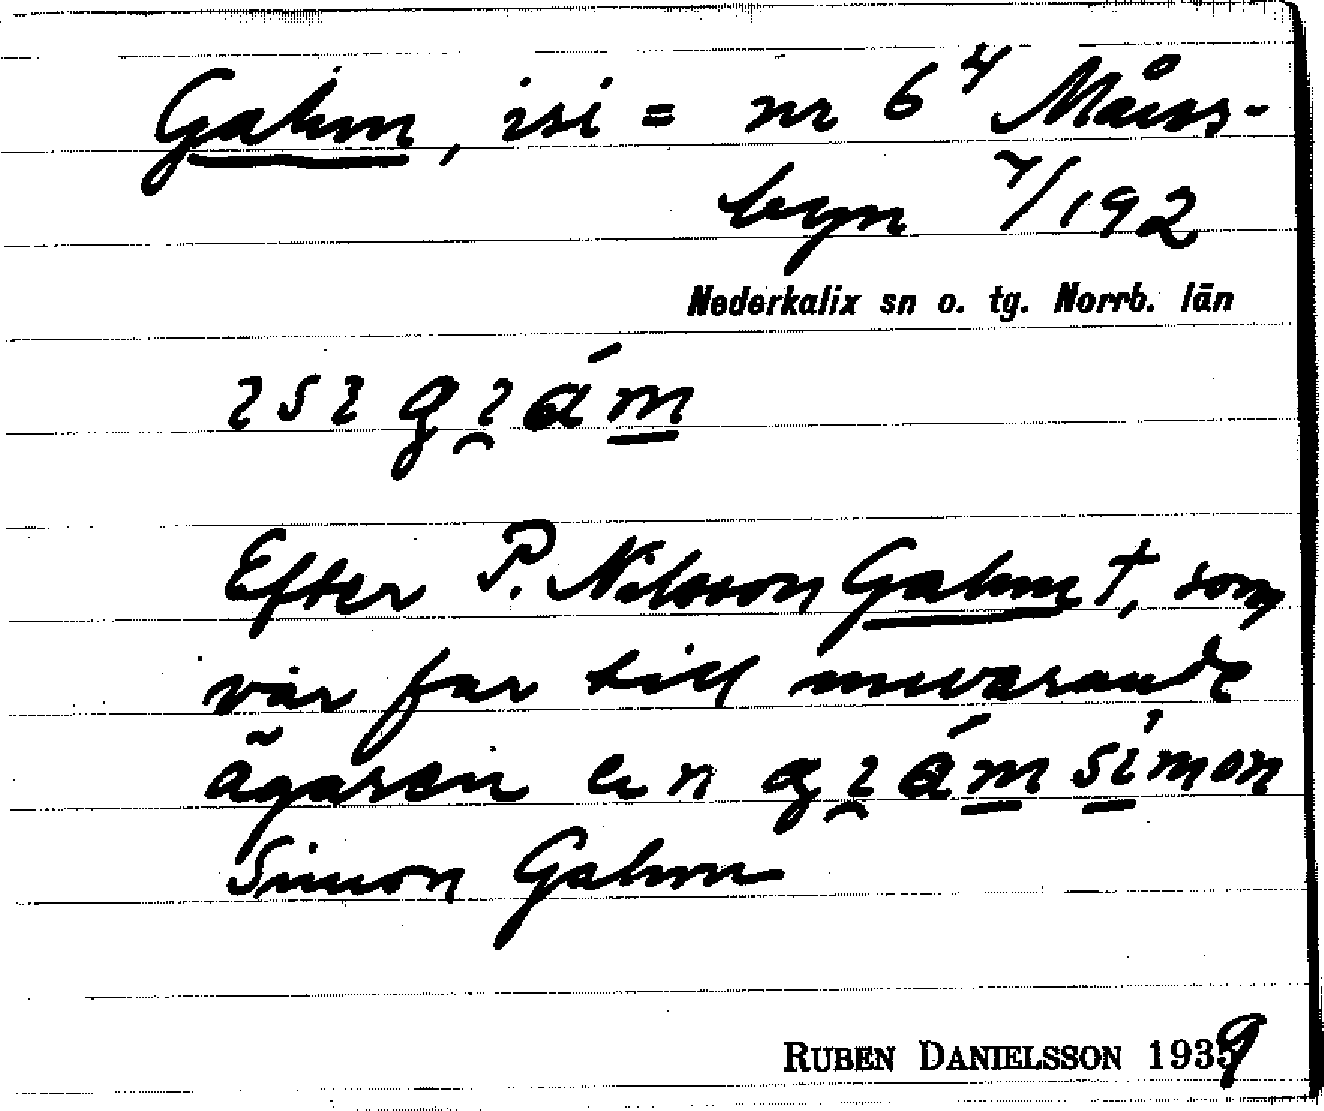 Gahm, isi = nr 6⁴ Måns-
byn 7/192
Nederkalix sn o. tg. Norrb. län
ısı gı̯ám
Efter P. Nilsson Gahm †, som
var far till nuvarande
ägaren en gı̯ám símon
Simon Gahm
RUBEN DANIELSSON 1939